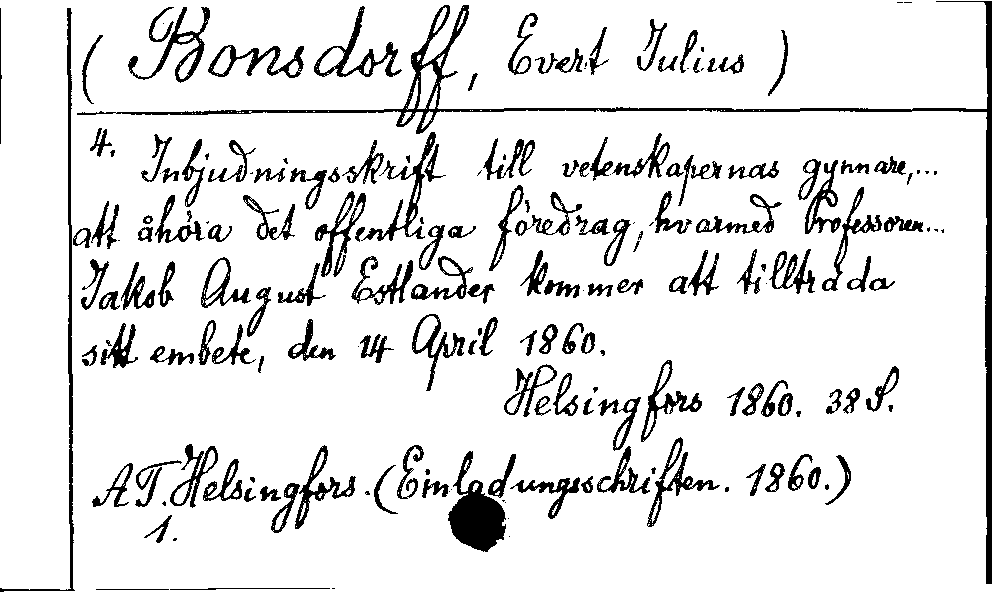 ( Bonsdorff, Evert Julius )
4. Inbjudningsskrift till vetenskapernas gynnare,...
att åhöra det offentliga föredrag, hvarmed Professoren...
Jakob August Estlander kommer att tillträda
sitt embete, den 14 April 1860.
Helsingfors 1860. 38 S.
AT. Helsingfors. (Einladungsschriften. 1860.)
1.